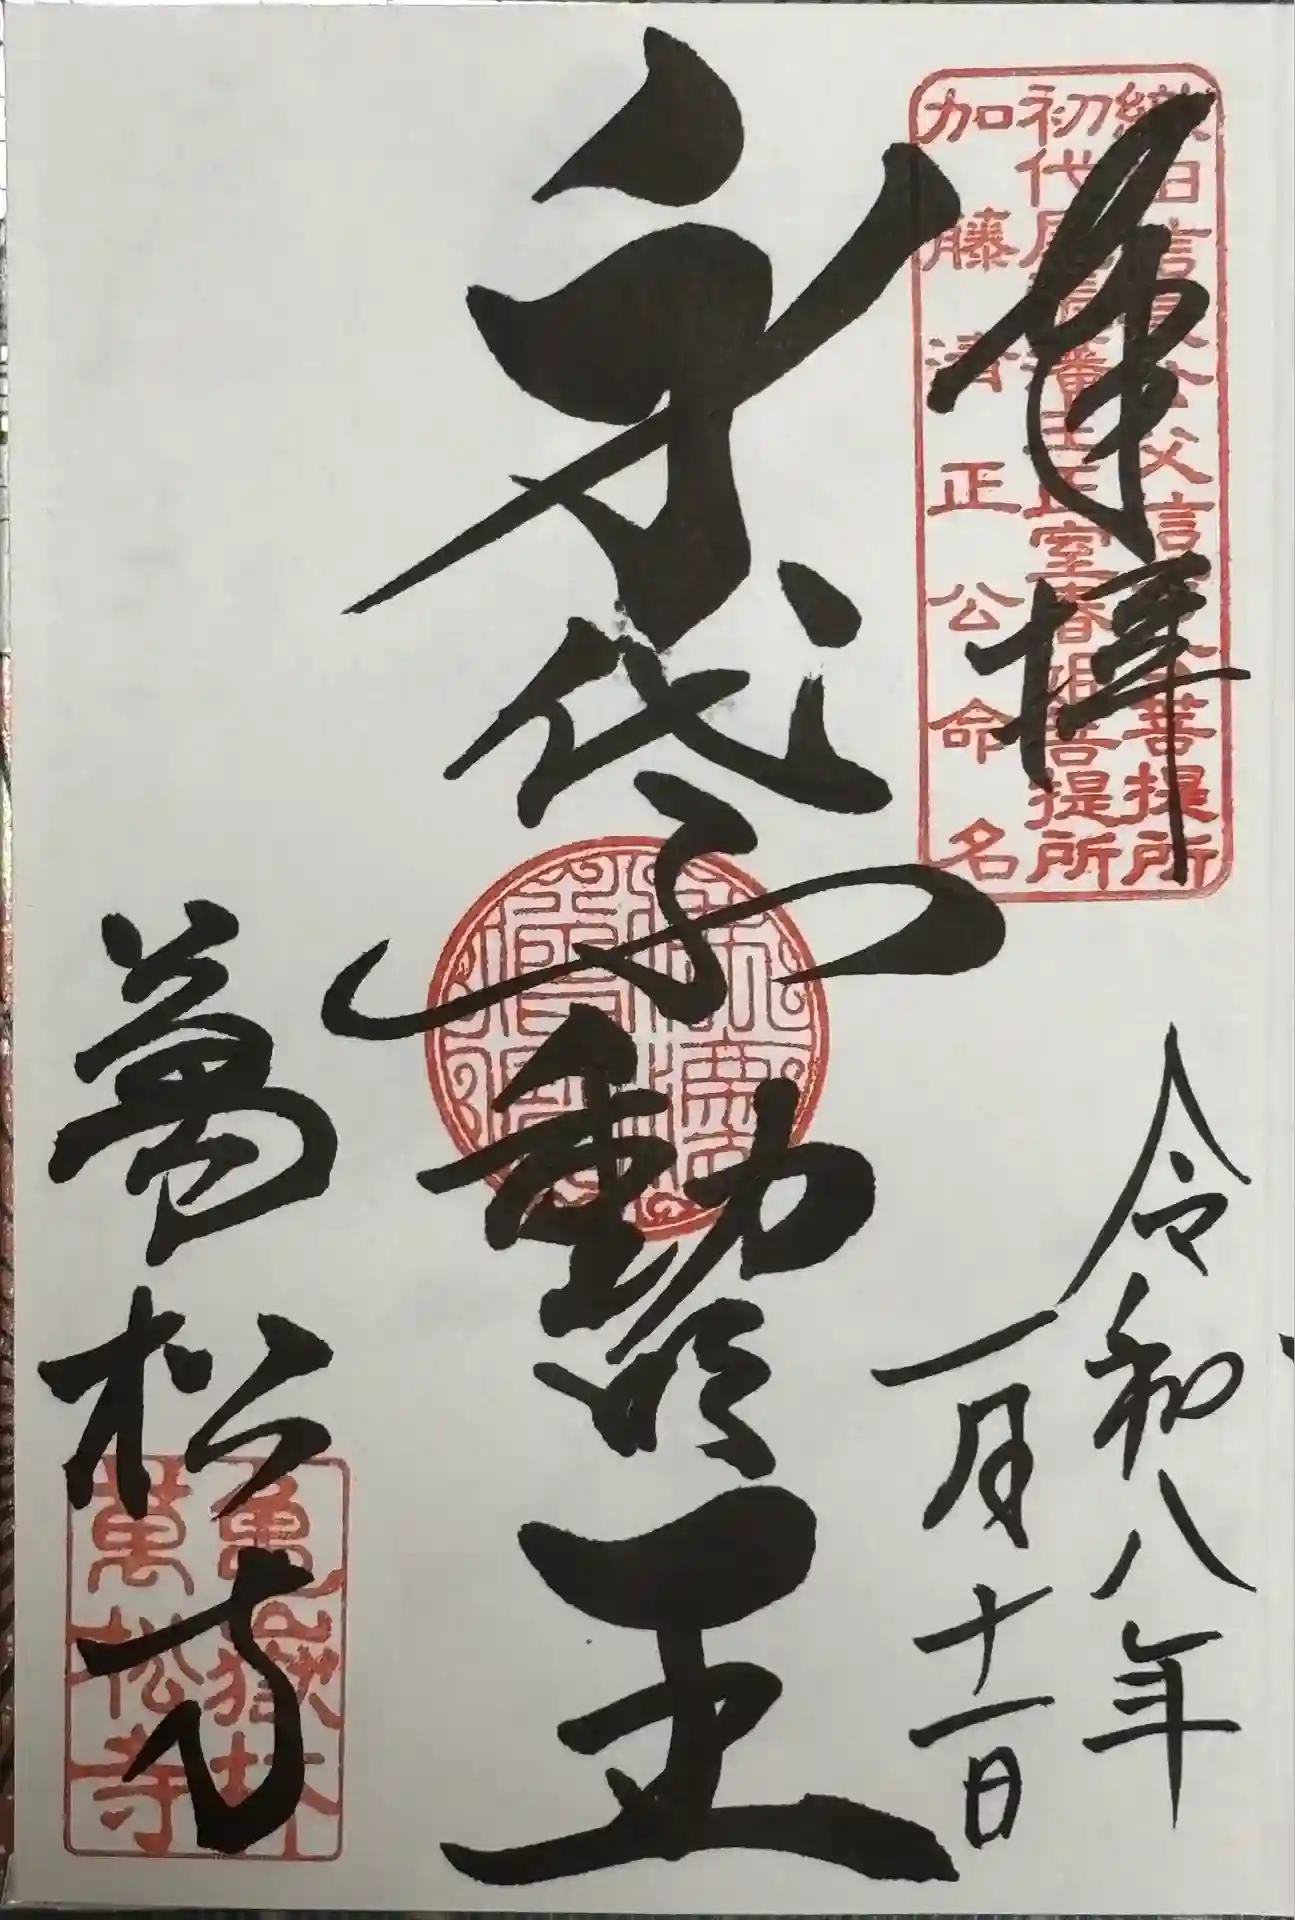 奉拝
織田信長公父信秀公菩提所
初代尾張藩主正室春姫菩提所
加藤清正公命名
令和八年
一月十一日
身代不動明王
萬松寺
亀嶽林
萬松寺